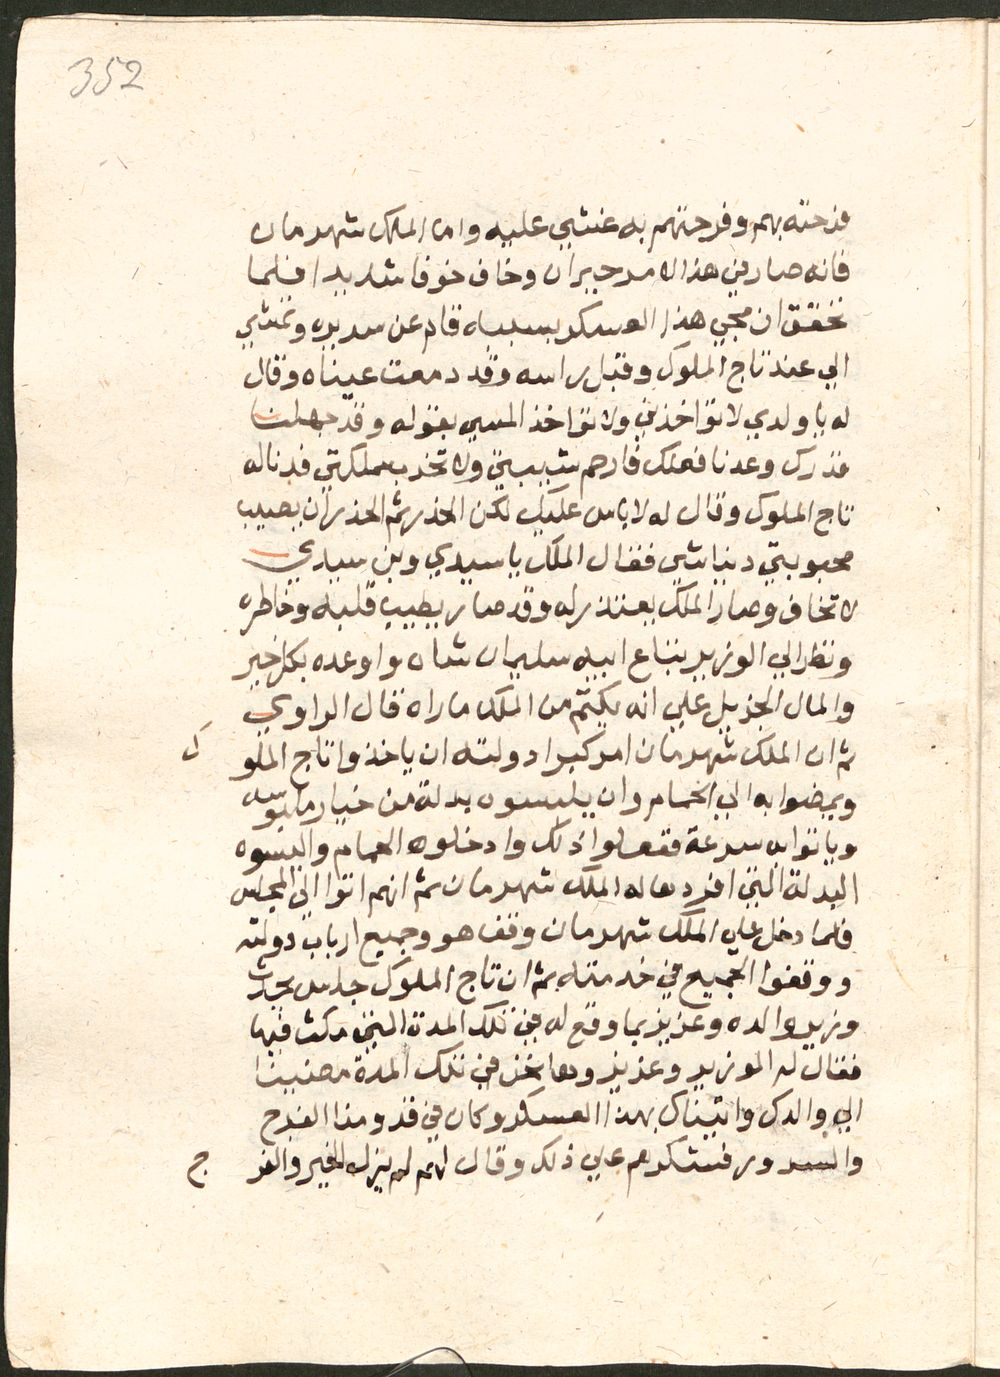 352
فرحته بهم وفرحتهم به غشي عليه واما الملك شهرمان
فانه صار في هذا الامر حيران وخاف خوفا شديدا فلما
تحقق ان مجي هذا العسكر بسببه قام عن سريره وتمشي
الي عند تاج الملوك وقبل راسه وقد دمعت عيناه وقال
له يا ولدي لا تواخذني ولا تواخذ المسي بفعله وقد جهلنا
قدرك وعدنا فعلك فارحم شيبتي ولا تخرب مملكتي فدنا له
تاج الملوك وقال له لا باس عليك لكن الحذر ثم الحذر ان يصيب
محبوبتي دنيا شي فقال الملك يا سيدي وبن سيدي
لا تخاف وصار الملك يعتذر له وقد صار يطيب قلبه وخاطره
ونظر الي الوزير بتاع ابيه سليمان شاه واوعده بكل خير
والمال الجزيل علي انه يكتم من الملك ما راه قال الراوي
ثم ان الملك شهرمان امر كبرا دولته ان ياخذوا تاج الملو
ك
ويمضوا به الي الحمام وان يلبسوه بدلة من خيار ملبوسه
وياتوا به سرعة ففعلوا ذلك وادخلوه الحمام والبسوه
البدلة التي افردها له الملك شهرمان ثم انهم اتوا الي المجلس
فلما دخل علي الملك شهرمان وقف هو وجميع ارباب دولته
ووقفوا الجميع في خدمته ثم ان تاج الملوك جلس يحدث
وزير والده وعزيز بما وقع له في تلك المدة التي مكث فيها
فقال له الوزير وعزيز ونحن في تلك المدة مضينا
الي والدك واتيناك بهذا العسكر وكان في قدومنا الفرح
والسرور فشكرهم علي ذلك وقال لهم لم يزل الخير والفر
ج